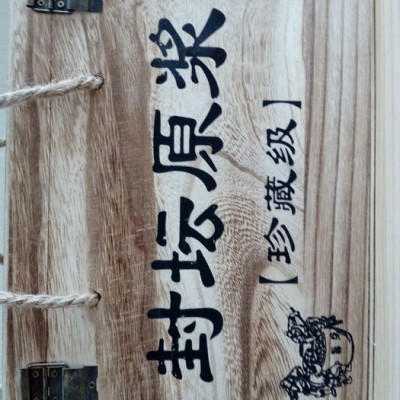 封坛原浆
【珍藏级】